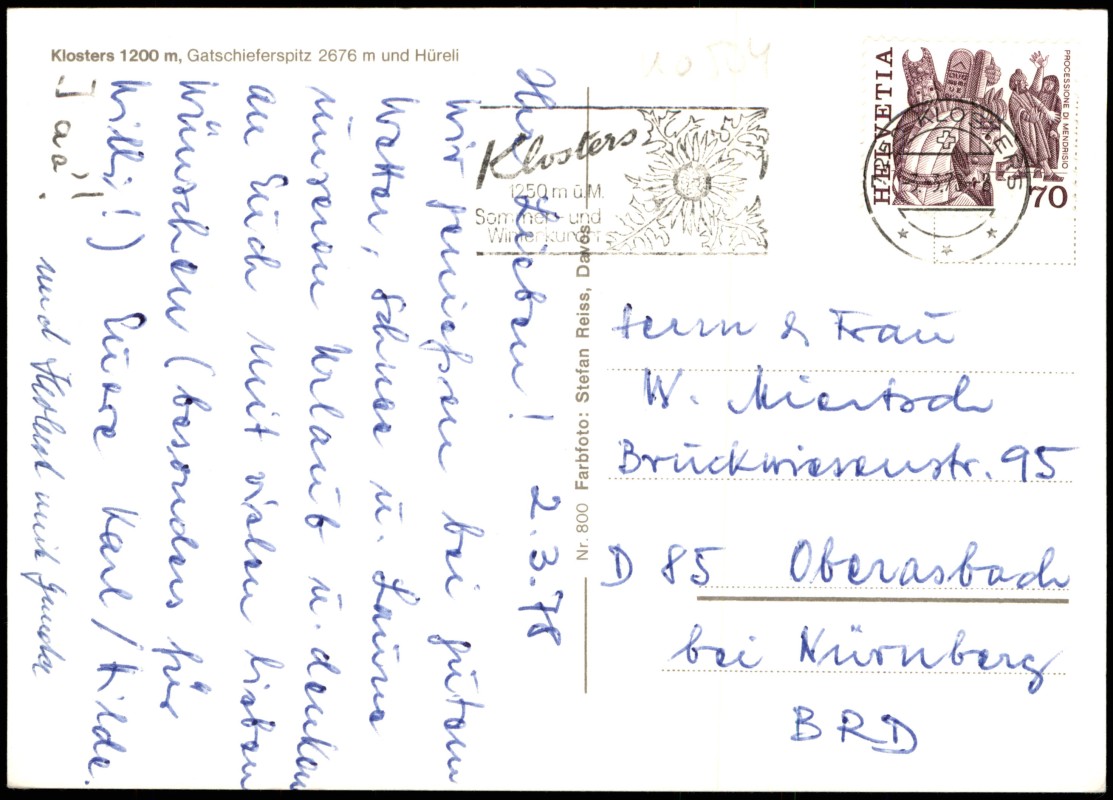 Klosters 1200 m, Gatschieferspitz 2676 m und Hüreli
Ihr Lieben! 2.3.78
Wir geniessen bei gutem
Wetter, Schnee u. Laune
unseren Urlaub u. denken
an Euch mit vielen lieben
Wünschen (besonders für
Willi!) Eure Karl / Hilde.
Jaa!!
und Herbert mit Gunda
Nr. 800 Farbfoto: Stefan Reiss, Davos
Klosters
1250 m ü. M.
Sommer- und
Winterkurort
HELVETIA
PROCESSIONE DI MENDRISIO
70
KLOSTERS
Herrn & Frau
W. Miertsch
Brückwiesenstr. 95
D 85 Oberasbach
bei Nürnberg
BRD